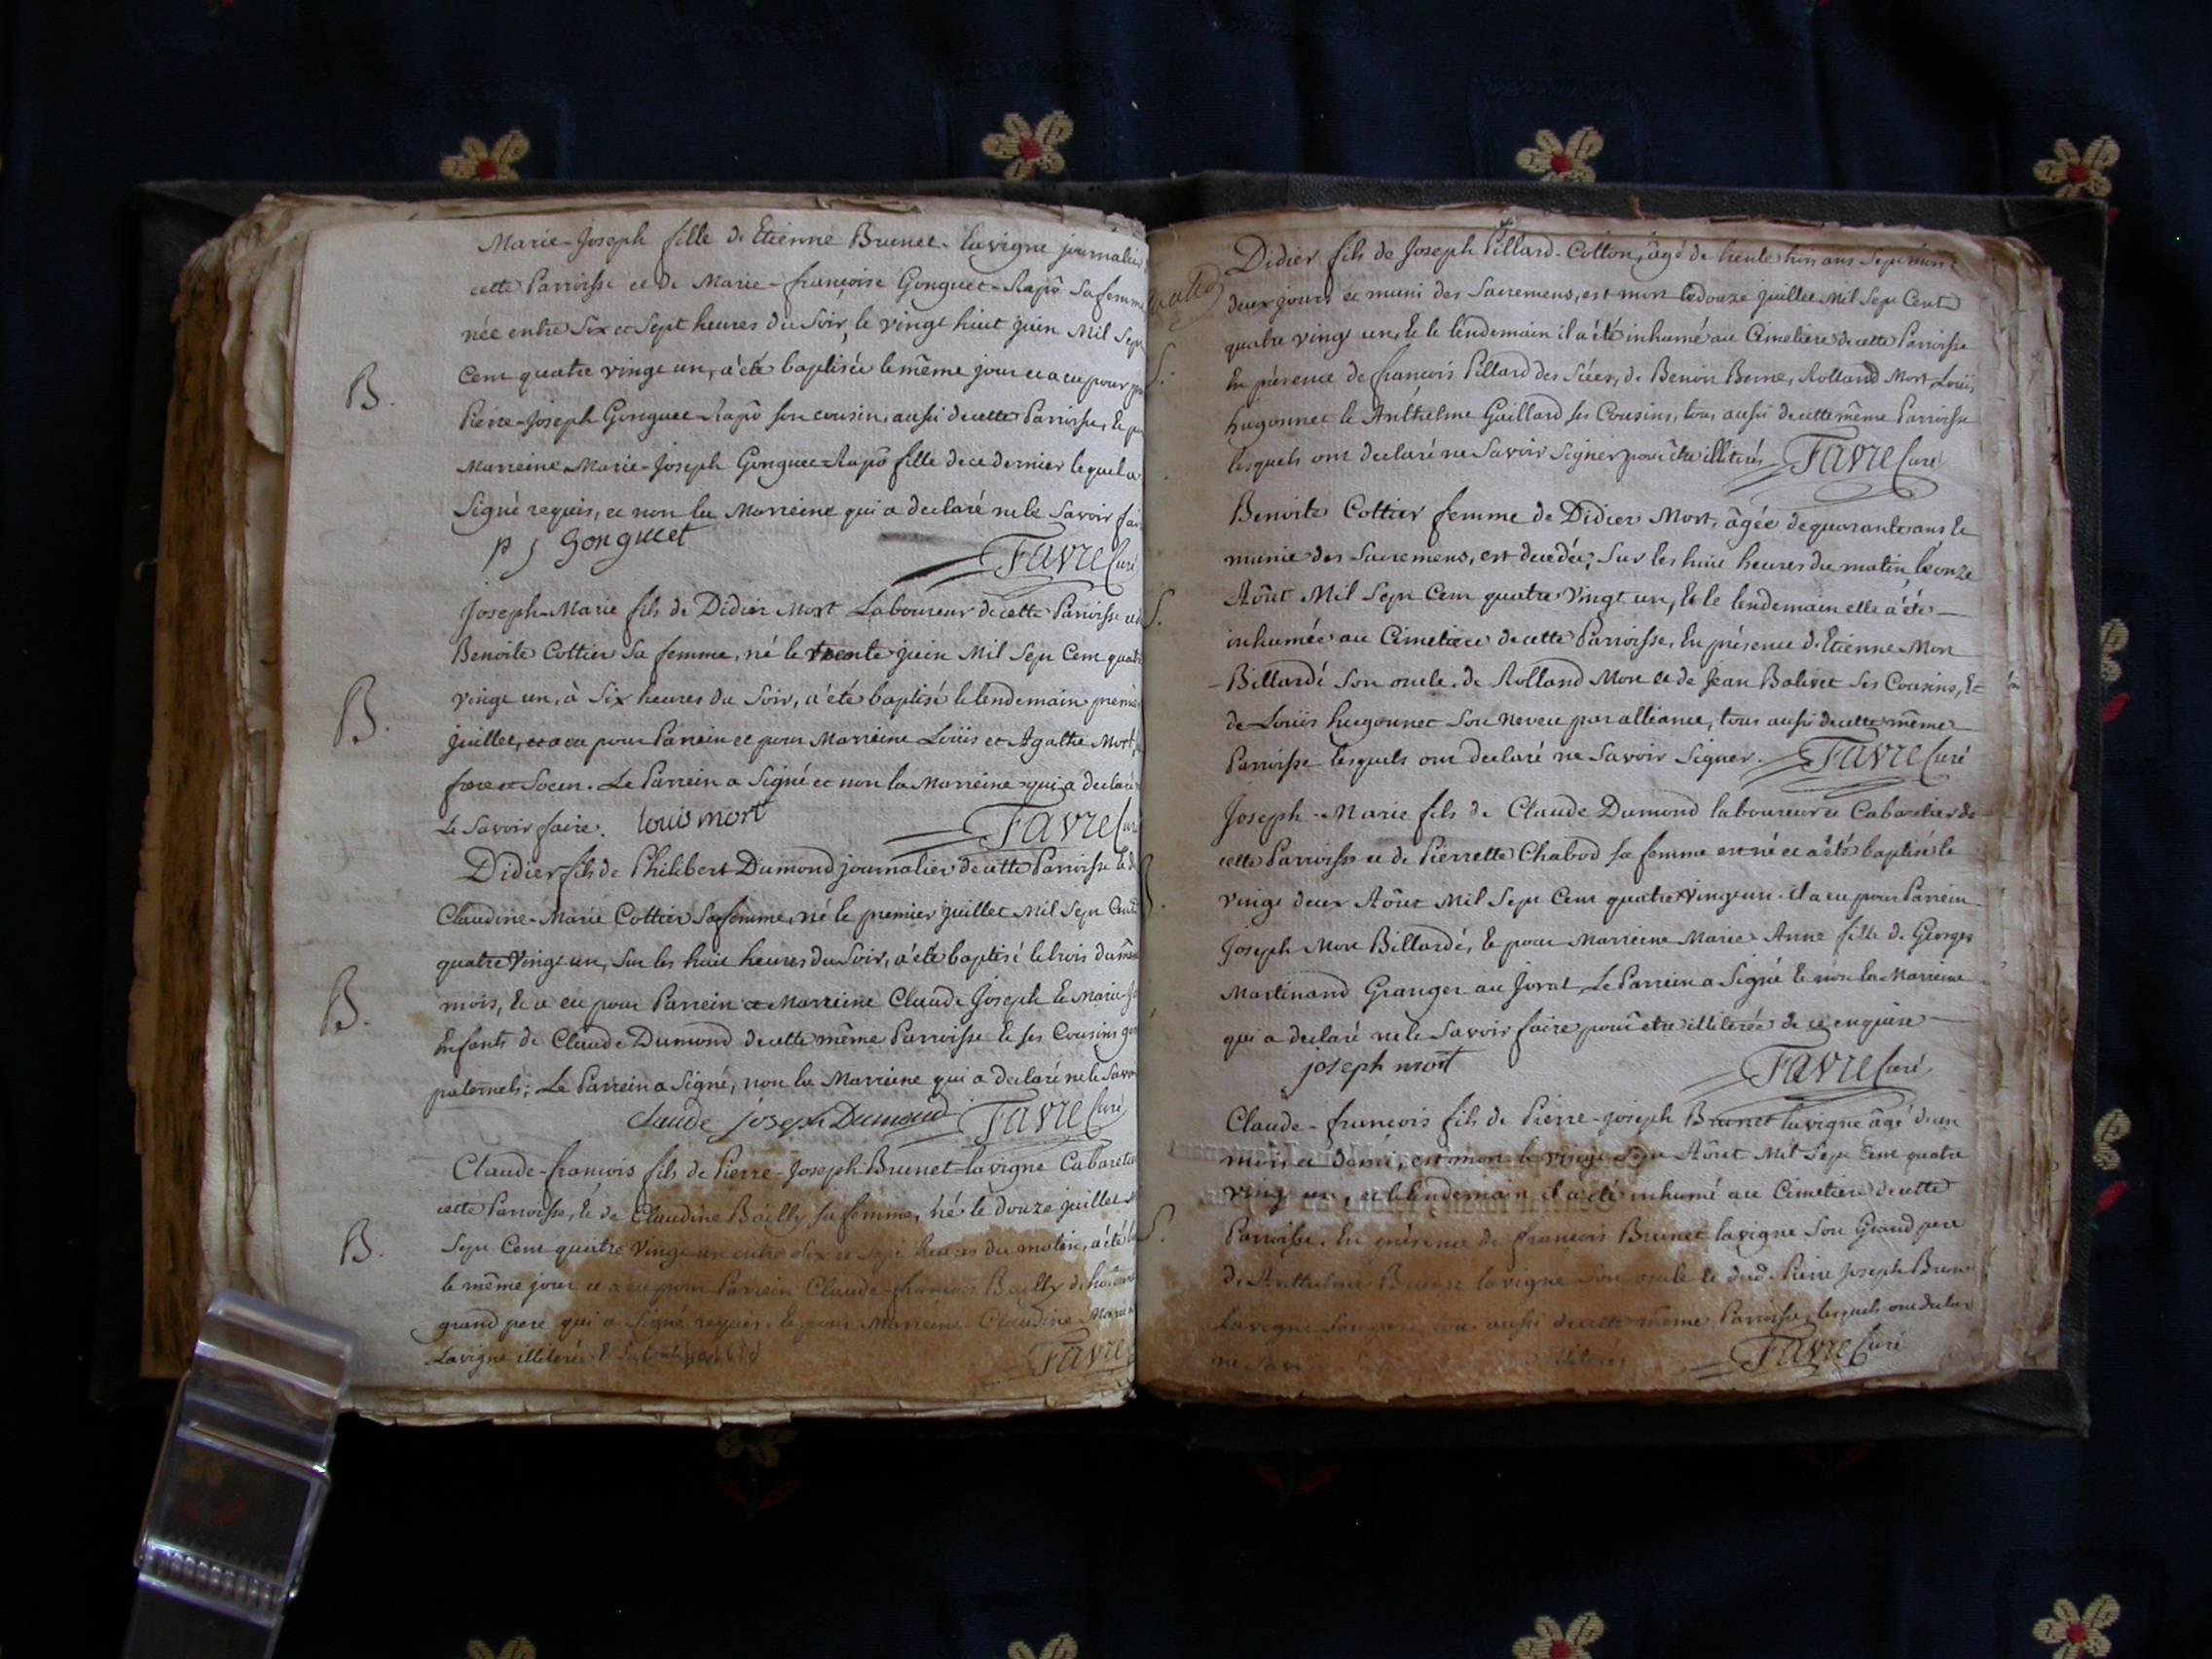 Marie-Joseph fille de Etienne Brunet-lavigne journalier
cette Parroisse et de Marie-françoise Gonguet-Rapô sa femme
née entre Six et Sept heures du Soir, le vingt huit juin Mil Sept
B.
Cent quatre vingt un, a été baptisée le même jour et a eu pour
Pierre-Joseph Gonguet-Rapô son cousin, aussi de cette Parroisse, et
Marreine Marie-Joseph Gonguet-Rapô fille de ce dernier lequel a
Signé requis, et non la Marreine qui a declaré ne le Savoir
p j Gonguet
Favre Curé
Joseph-Marie fils de Didier Mort Laboureur de cette Parroisse et
Benoite Cottier sa femme, né le trente juin Mil Sept Cent quatre
B.
vingt un, à Six heures du Soir, a été baptisé le lendemain premier
juillet, et a eu pour Parrein et pour Marreine Loüis et Agathe Mort,
frere et Soeur. Le Parrein a Signé et non la Marreine qui a declaré
Le Savoir faire. louis mort
Favre
Didier fils de Philibert Dumond journalier de cette Parroisse et de
Claudine-Marie Cottier sa femme, né le premier juillet Mil Sept Cent
quatre Vingt un, Sur les huit heures du Soir, a été baptisé le trois du même
B.
mois, et a eu pour Parrein et Marreine Claude Joseph et Marie
Enfants de Claude Dumond de cette même Parroisse et ses Cousins
paternels; Le Parrein a Signé, non la Marreine qui a declaré ne le Savoir
Claude joseph Dumond Favre Curé
Claude-francois fils de Pierre-Joseph Brunet-lavigne Cabaretier
cette Parroisse, et de Claudine Bailly sa femme, né le douze juillet
B.
Sept Cent quatre Vingt un entre Six et Sept heures du matin, a été
le même jour et a eu pour Parrein Claude-francois Bailly
grand pere qui a Signé requis, et pour Marreine Claudine Marie
Lavigne illiterée
Favre
Didier fils de Joseph Pillard-Cotton, âgé de trente trois ans Sept mois
deux jours et muni des Sacremens, est mort le douze juillet Mil Sept Cent
quatre vingt un, et le lendemain il a été inhumé au Cimetiere de cette Parroisse
S.
En présence de francois Pillard des Sées, de Benoit Berne, Rolland Mort, Loüis
hugonnet et Anthelme Gaillard ses Cousins, tous aussi de cette même Parroisse
lesquels ont declaré ne Savoir Signer pour être illiterés Favre Curé
Benoite Cottier femme de Didier Mort, âgée de quarante ans et
munie des Sacremens, est decedée, Sur les huit heures du matin, le onze
S.
Aôut Mil Sept Cent quatre Vingt un, et le lendemain elle a été
inhumée au Cimetiere de cette Parroisse, En présence d'Etienne Mort
Billardé Son oncle, de Rolland Mort et de Jean Balivet ses Cousins, Et
de Loüis hugonnet Son neveu par alliance, tous aussi de cette même
Parroisse lesquels ont declaré ne Savoir Signer. Favre Curé
Joseph-Marie fils de Claude Dumond laboureur et Cabaretier de
cette Parroisse et de Pierrette Chabod sa femme est né et a été baptisé le
vingt deux Aôut Mil Sept Cent quatre Vingt un. il a eu pour Parrein
Joseph Mort Billardé, et pour Marreine Marie-Anne fille de Georges
Martinand Granger au Jorat, Le Parrein a Signé et non la Marreine
qui a declaré ne le Savoir faire pour être illiterée de ce enquise
joseph mort Favre Curé
Claude-francois fils de Pierre-joseph Brunet lavigne âgé d'un
mois et demi, est mort le vingt Sept Aôut Mil Sept Cent quatre
vingt un, et le lendemain il a été inhumé au Cimetiere de cette
S.
Parroisse. En présence de francois Brunet lavigne Son Grand pere
de Anthelme Brunet lavigne Son oncle et dud. Pierre Joseph Brunet
lavigne Son pere, tous aussi de cette même Parroisse, lesquels ont declaré
ne Savoir illiterés Favre Curé